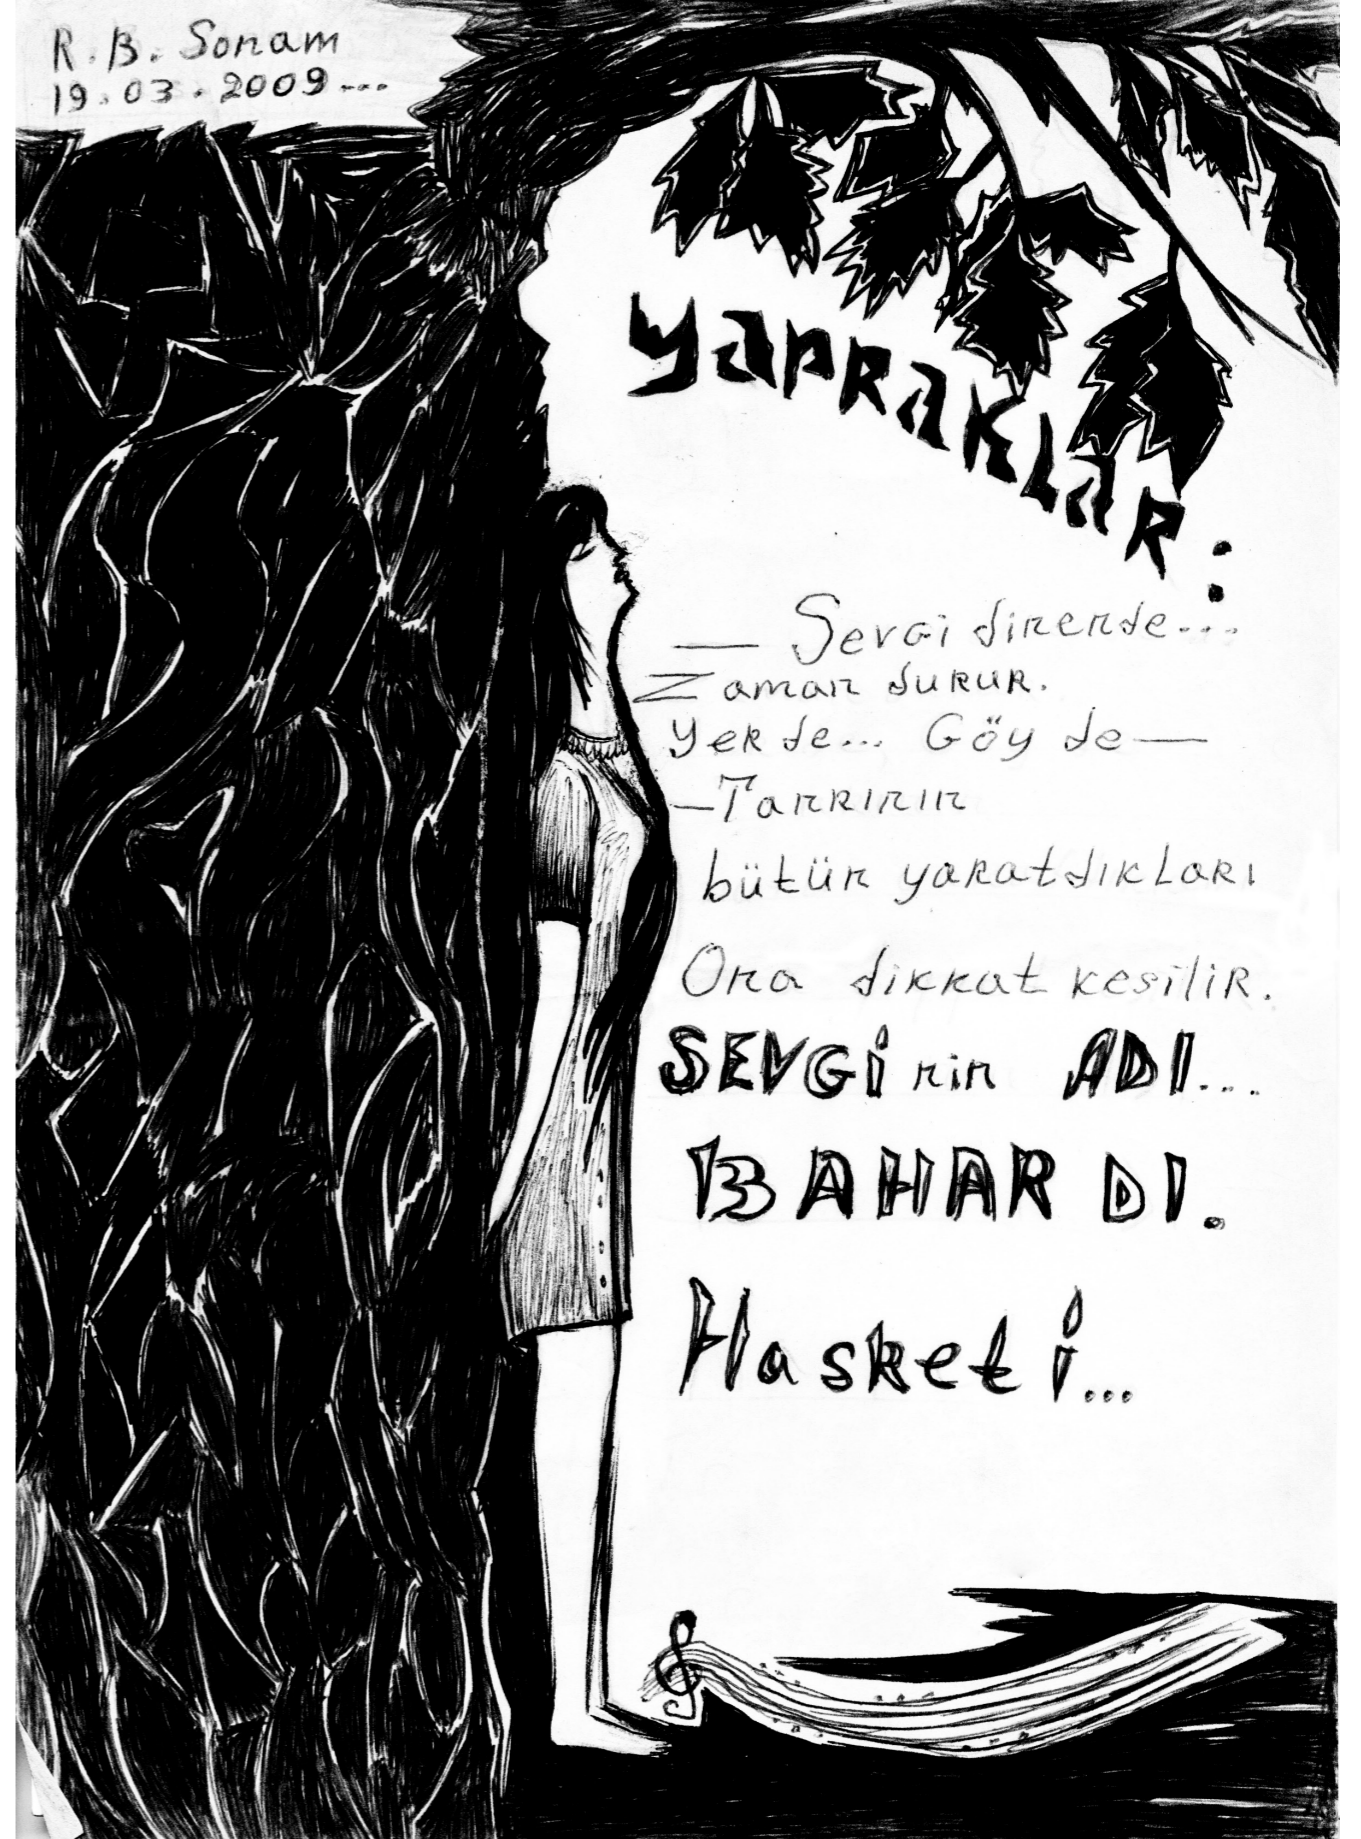 R. B. Sonam
19.03.2009...
yapraklar:
— Sevgi dinende...
Zaman durur.
Yerde... Göyde —
— Tanrının
bütün yaratdıkları
Ona dikkat kesilir.
SEVGİnin ADI...
BAHARDI.
Hasketi...